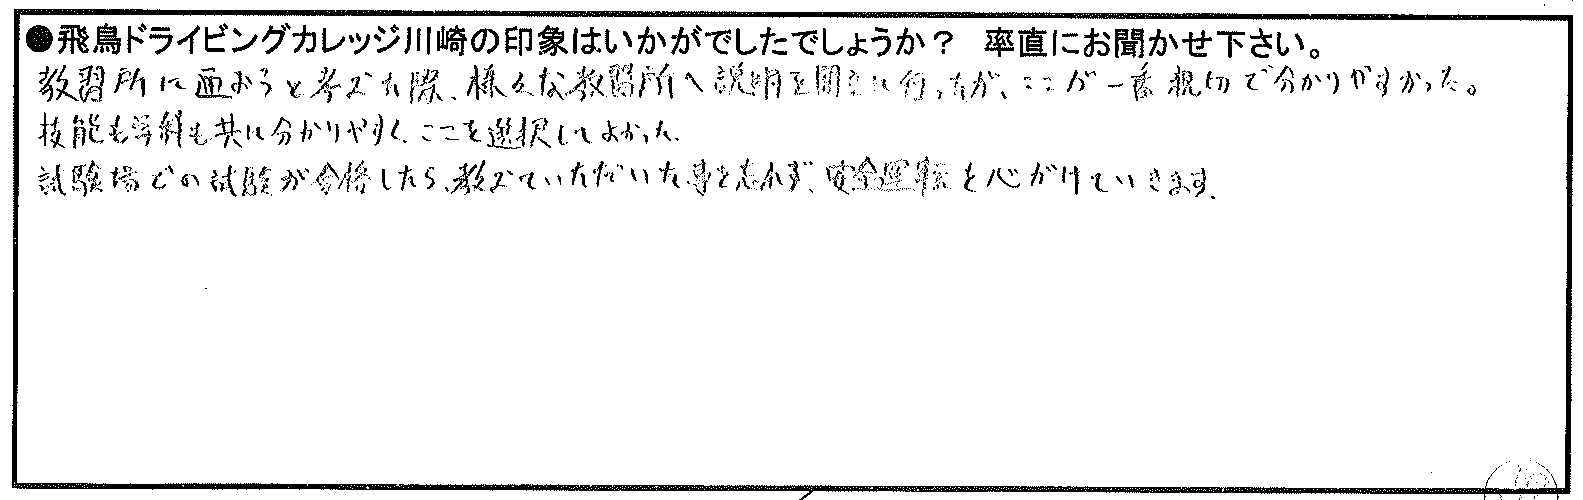 ●飛鳥ドライビングカレッジ川崎の印象はいかがでしたでしょうか？ 率直にお聞かせ下さい。
教習所に通おうと考えた際、様々な教習所へ説明を聞きに行ったが、ここが一番親切で分かりやすかった。
技能も学科も共に分かりやすく、ここを選択してよかった。
試験場での試験が合格したら、教えていただいた事を忘れず、安全運転を心がけていきます。